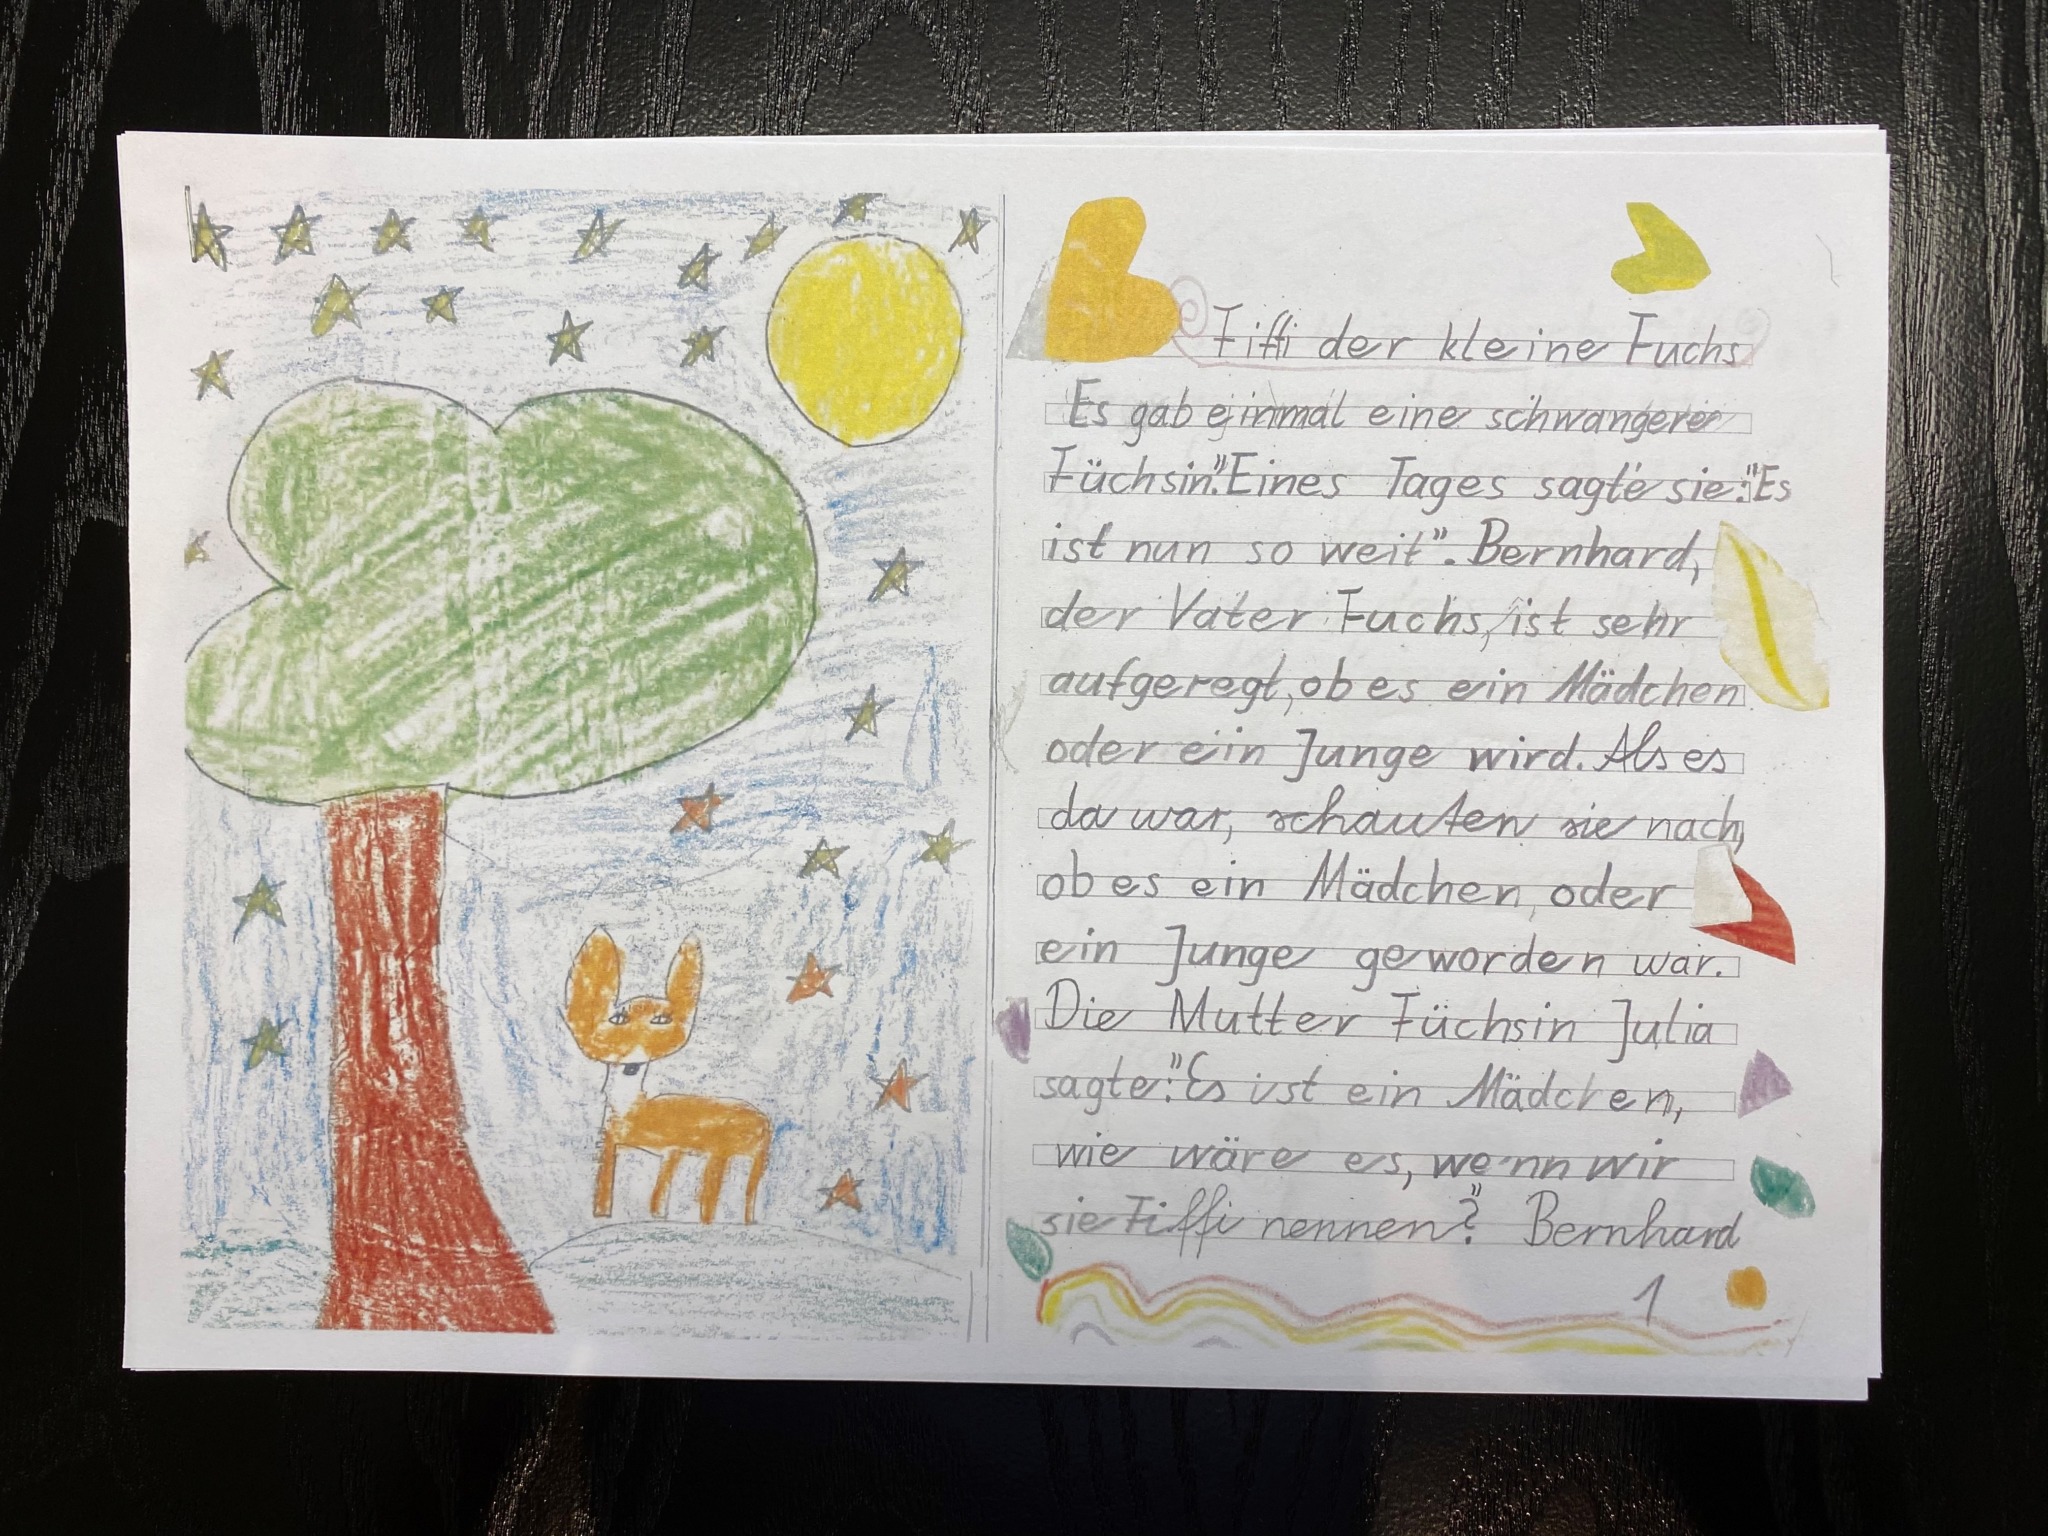 Fiffi der kleine Fuchs
Es gab einmal eine schwangere
Füchsin". Eines Tages sagte sie:"Es
ist nun so weit". Bernhard,
der Vater Fuchs, ist sehr
aufgeregt, ob es ein Mädchen
oder ein Junge wird. Als es
da war, schauten sie nach,
ob es ein Mädchen, oder
ein Junge geworden war.
Die Mutter Füchsin Julia
sagte:"Es ist ein Mädchen,
wie wäre es, wenn wir
sie Fiffi nennen?" Bernhard
1